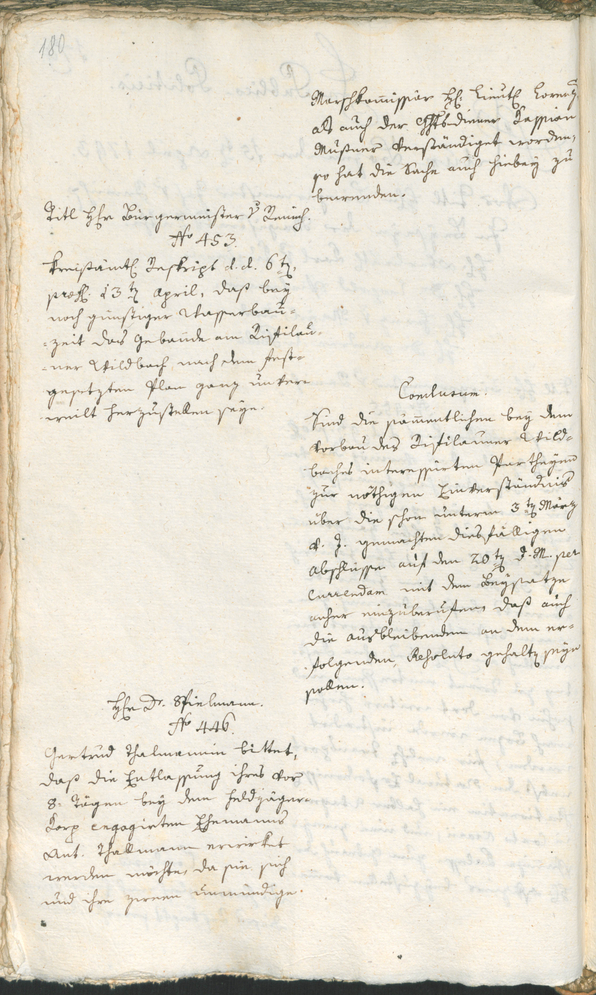 180
Marschkommissär H: Lieut: Lorenz
als auch der Gerichtsdiener Kassian
Mußner verständiget worden,
so hat die Sache auch hiebey zu
bewenden.
Titl Hr Bürgermeister v
No 453.
Kreisämtl Reskript d. d. 6 t,
praes: 13 t April, daß bey
noch günstiger Wasserbau-
=zeit das Gebäude am Tisilau-
=ner Wildbach nach dem fest-
gesetzten Plan ganz unver-
weilt herzustellen seye.
Conclusum.
Sind die sämmentlichen bey dem
Vorbau des Tisilauner Wild-
baches interessirten Partheyen
zur nöthigen Einverständnis
über die schon unterm 3 t März
d. J. gemachten diesfälligen
Abschlüsse auf den 20 t d. M. per
Currendam mit dem Beysatze
anher einzuberufen, daß auch
die ausbleibenden an dem er-
folgenden Resoluto gehalten seyn
sollen.
Hr Dr. Spielmann.
No 446.
Gertrud Thalmannin bittet,
daß die Entlassung ihres vor
8. Tägen bey dem Feldjäger
Korp engagirten Ehemanns
Ant. Thallmann erwirket
werden möchte, da sie sich
und ihre zween unmündige